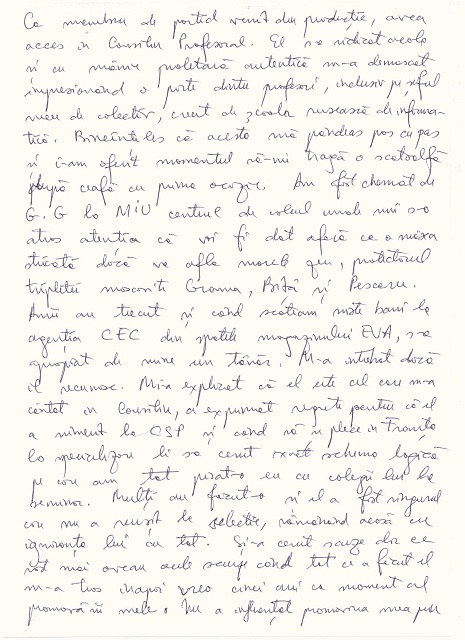 Ca membru de partid venit din producție, avea
acces in Consiliu Profesoral. El s-a ridicat acolo
și cu mânie proletară autentică m-a demascat
impresionand o parte dintre profesori, inclusiv pe șeful
meu de colectiv, creat de școala rusească de informa-
tică. Bineînteles că acesta mă pândeas pas cu pas
și i-am oferit momentul să-mi tragă o scatoalfă
după ceafă cu prima ocazie. Am fost chemat de
G.G la MIU centrul de calcul unde mi s-a
atras atentia că voi fi dat afară ca o măsea
stricată dacă va afla marele șeu, protectorul
tripletei moscovite Gramma, Bâță și Pescaru.
Anii au trecut și cand scoteam niste bani la
agenția CEC din spatele magazinului EVA, s-a
apropiat de mine un tânăr. M-a intrebat dacă
il recunosc. Mi-a explicat că el este cel care m-a
cântat in Consiliu, a exprimat regrete pentru că el
a nimerit la CSP și cand să și plece in Franța
la specializare li s-a cerut exact schema logică
pe care am tot pisat-o eu cu colegii lui la
seminar. Mulți au făcut-o și el a fost singurul
care nu a reusit la selectie, rămânand acasă cu
ignoranța lui cu tot. Și-a cerut scuze dar ce
rost mai aveau acele scuze cand tot ce a făcut el
m-a tras inapoi vreo cinci ani ca moment al
promovării mele. Nu a influențat promovarea mea prin